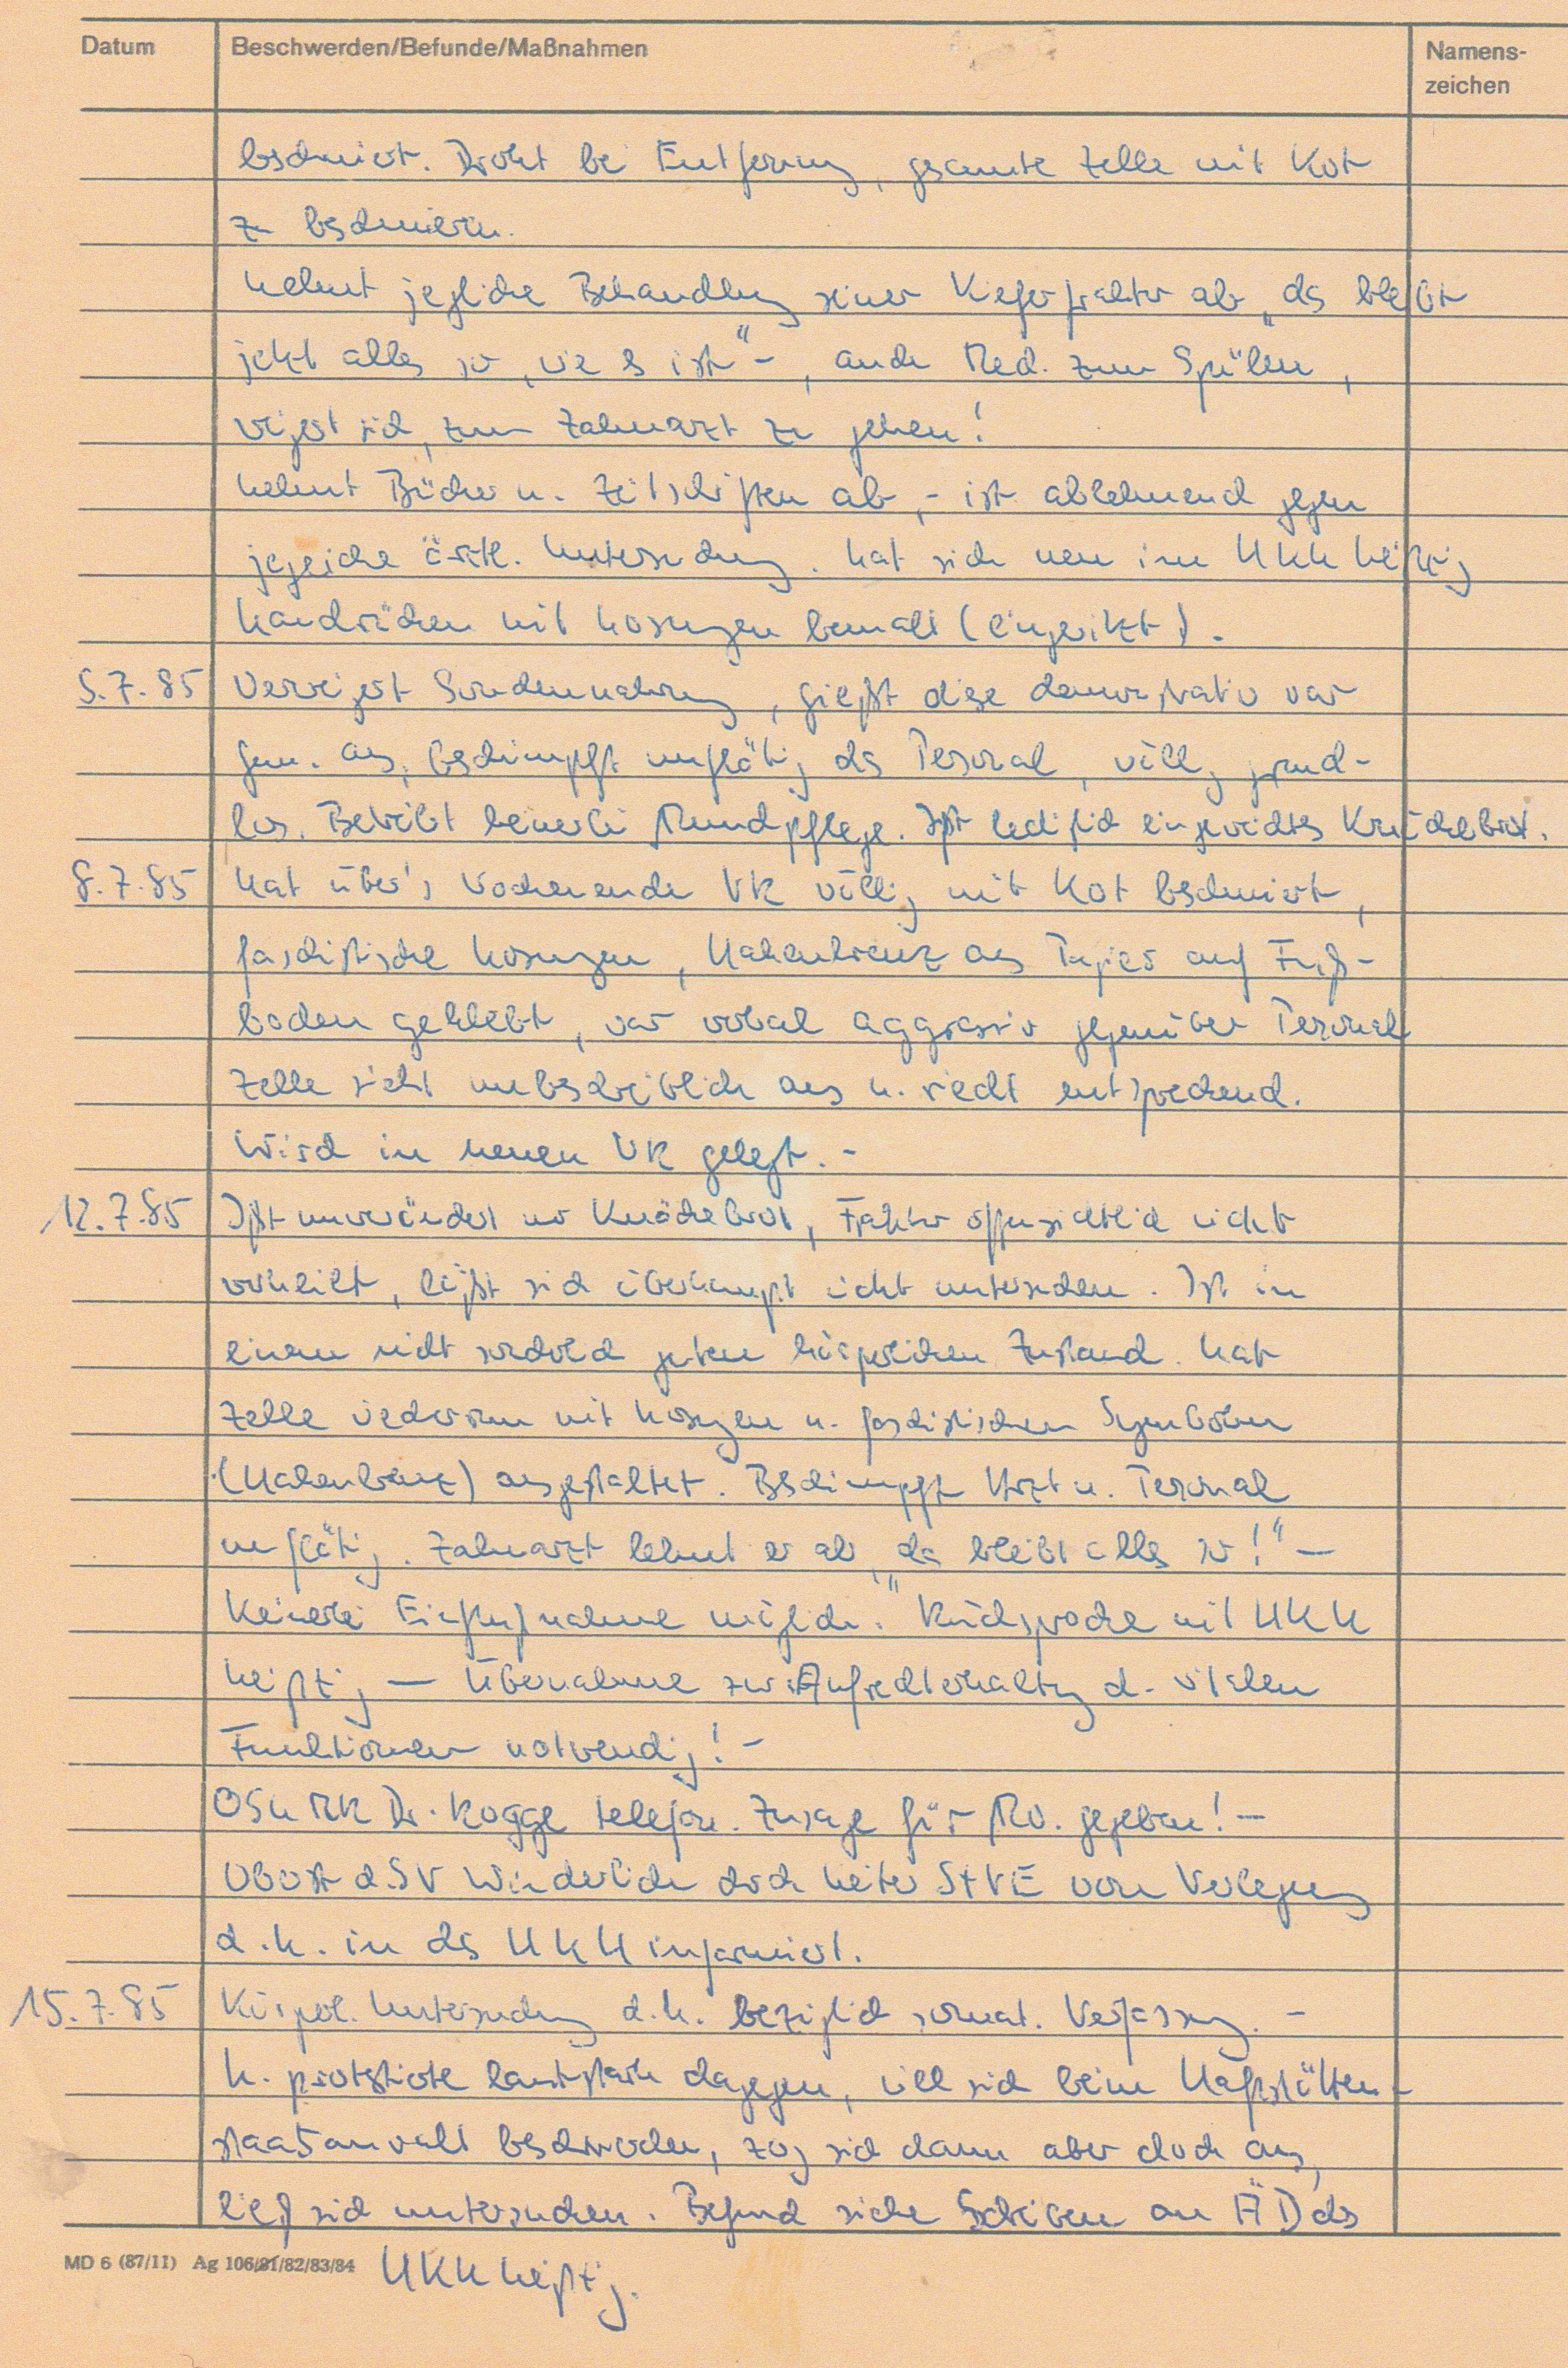 Datum Beschwerden/Befunde/Maßnahmen Namens-
zeichen
beschmiert. Droht bei Entfernung, gesamte Zelle mit Kot
zu beschmieren.
Lehnt jegliche Behandlung seiner Kieferfraktur ab „da bleibt
jetzt alles so, wie es ist“ –, auch Med. zum Spülen,
weigert sich, zum Zahnarzt zu gehen!
Lehnt Bücher u. Zeitschriften ab, – ist ablehnend gegen
jegliche ärztl. Untersuchung. Hat sich nun im HKH Leipzig
Handrücken mit Losungen bemalt (eingeritzt).
5.7.85 Verweigert Sondennahrung, gießt diese demonstrativ vor
aus, beschimpft unflätig das Personal, völlig grund-
los. Betreibt keinerlei Mundpflege. Ißt lediglich eingeweichtes Knäckebrot.
8.7.85 Hat über's Wochenende VR völlig mit Kot beschmiert,
faschistische Losungen, Hakenkreuz aus Papier auf Fuß-
boden geklebt, war verbal aggressiv gegenüber Personal
Zelle sieht unbeschreiblich aus u. riecht entsprechend.
Wird in neuen VR gelegt. –
12.7.85 Ißt unverändert nur Knäckebrot, Fraktur offensichtlich nicht
verheilt, läßt sich überhaupt nicht untersuchen. Ist in
einem nicht sonderlich guten körperlichen Zustand. Hat
Zelle wiederum mit Losungen u. faschistischen Symbolen
(Hakenkreuz) ausgestaltet. Beschimpft Arzt u. Personal
unflätig. Zahnarzt lehnt er ab „da bleibt alles so!“ –
Keinerlei Einflußnahme möglich. Rücksprache mit HKH
Leipzig – Übernahme zur Aufrechterhaltung d. vitalen
Funktionen notwendig! –
OSL MR Dr. Rogge telefon. Zusage für Mo. gegeben! –
Oberst d. SV Winderlich durch Leiter StVE von Verlegung
d. H. in das HKH informiert.
15.7.85 Körperl. Untersuchung d. H. bezüglich somat. Verfassung. –
H. protestierte lautstark dagegen, will sich beim Haftstätten-
staatsanwalt beschweren, zog sich dann aber doch aus,
ließ sich untersuchen. Befund siehe Schreiben an ÄD des
MD 6 (87/11) Ag 106/81/82/83/84 HKH Leipzig.